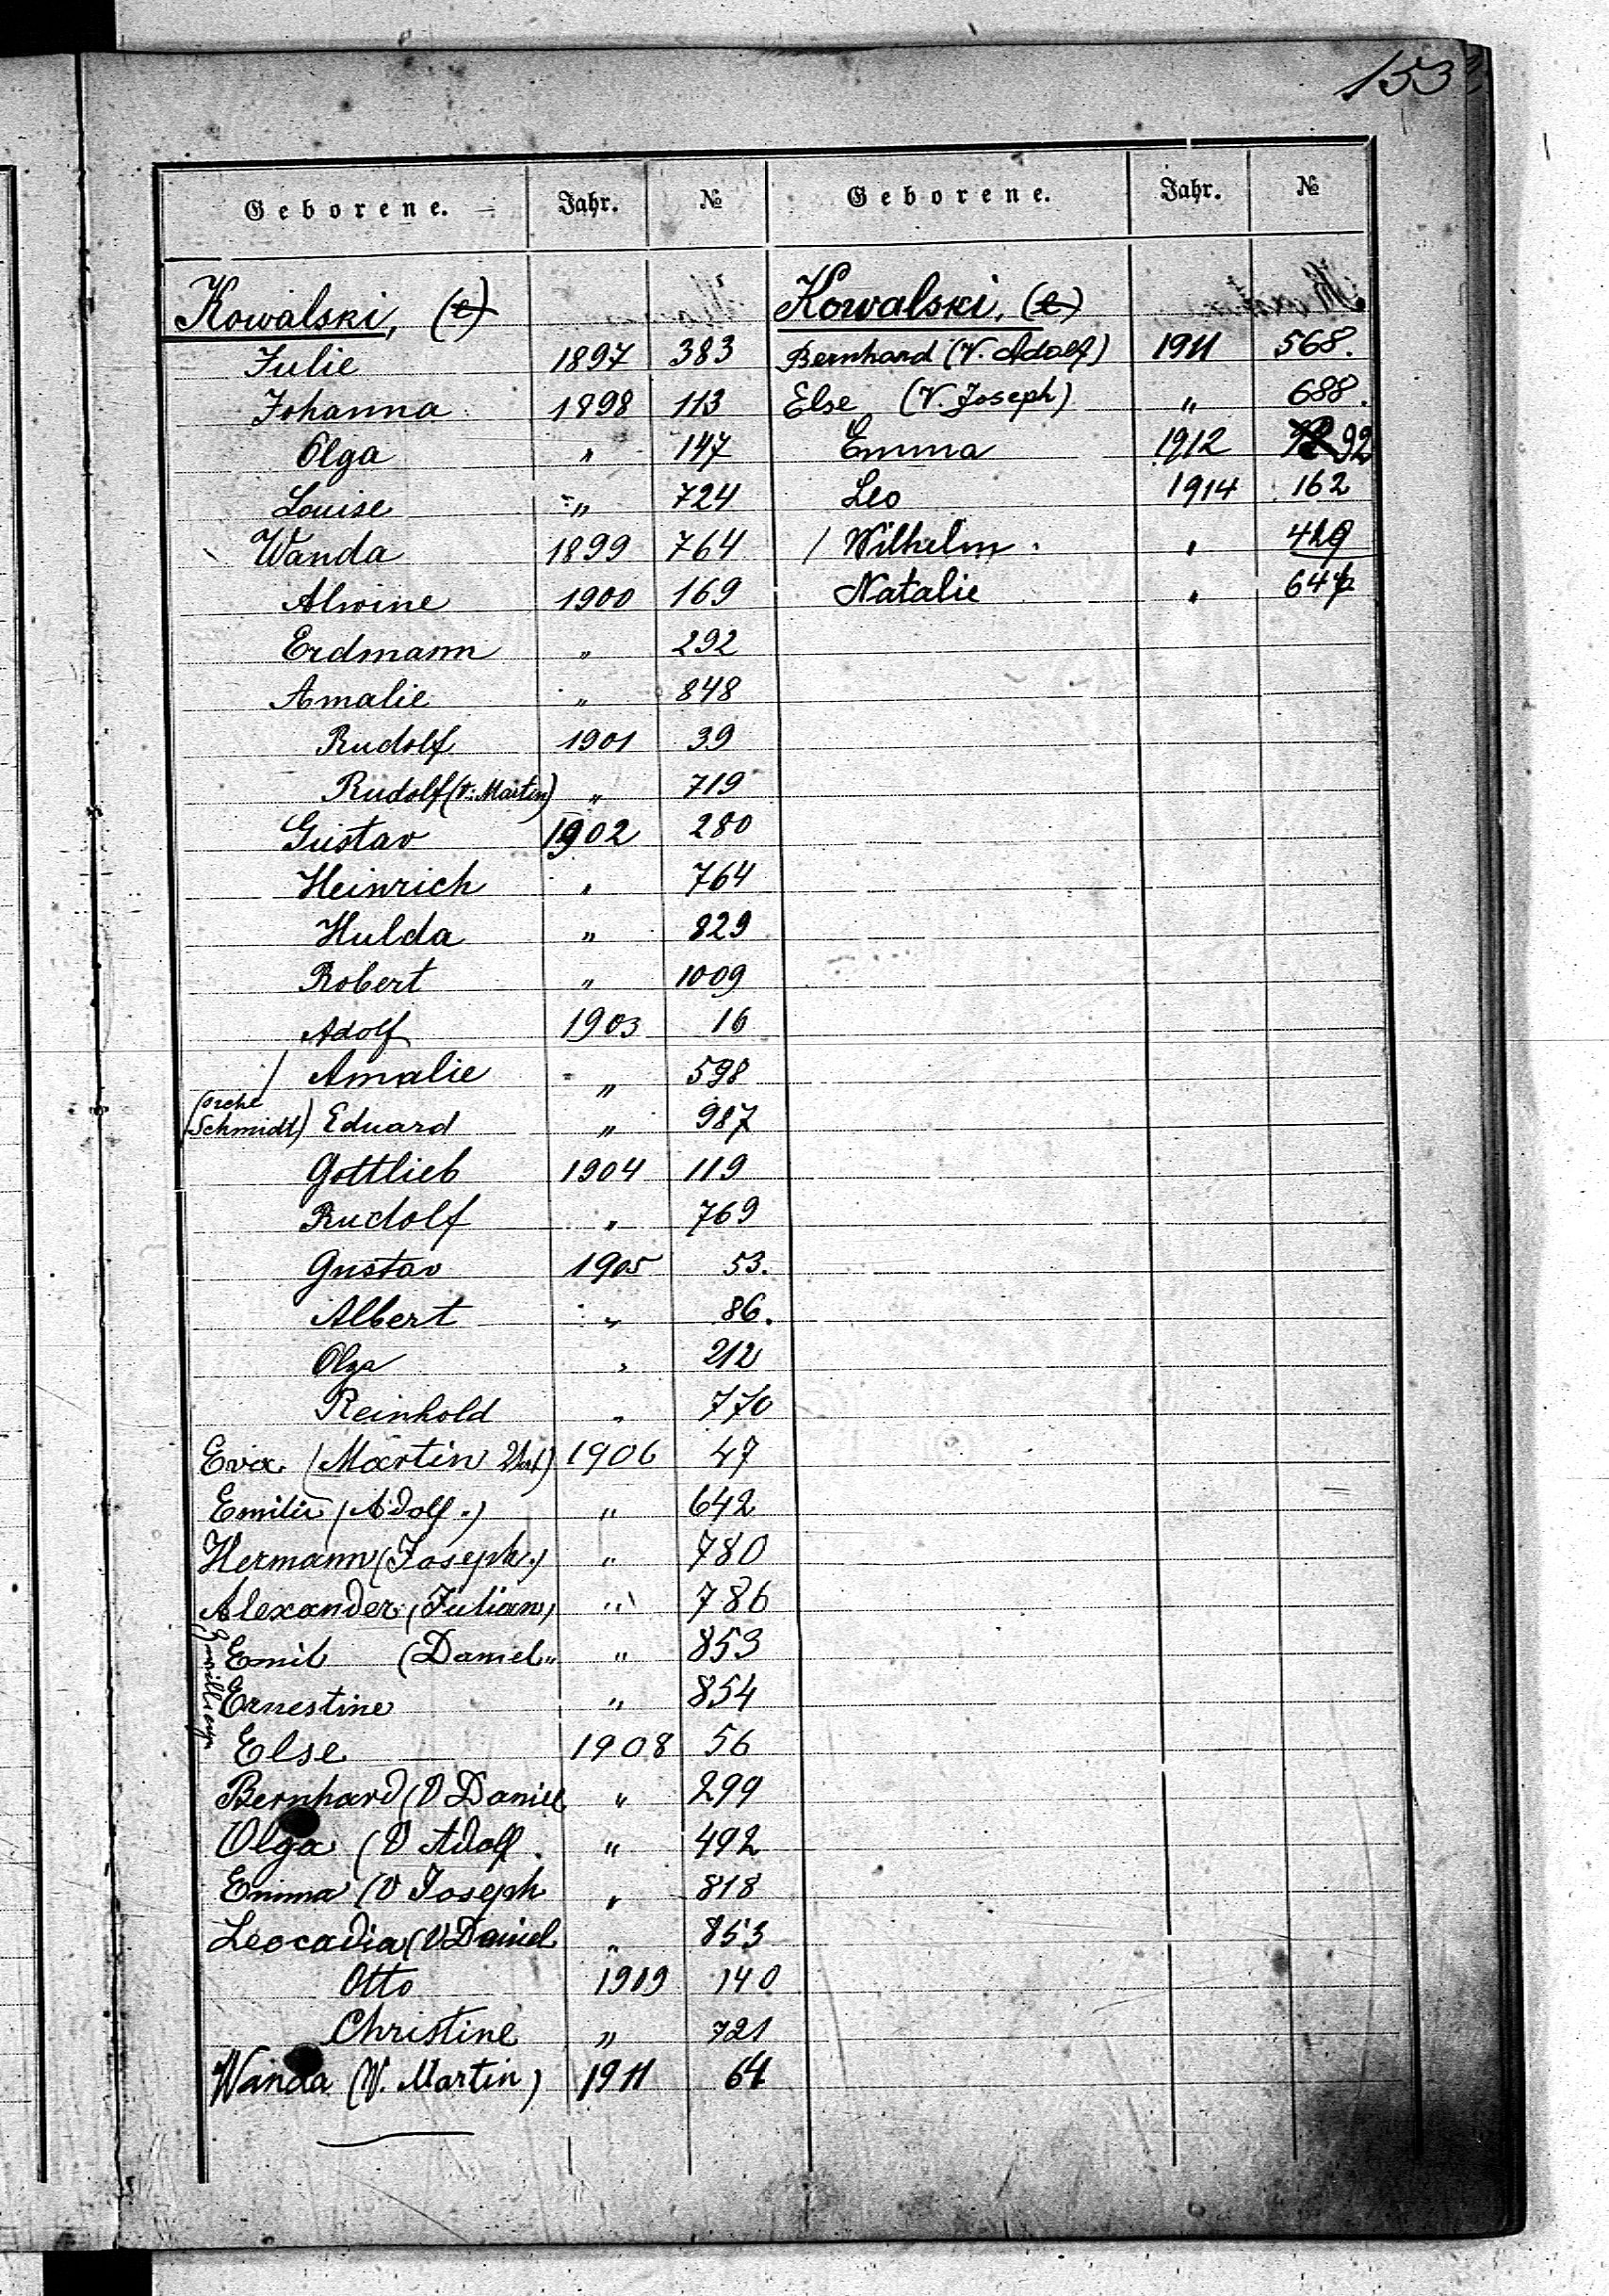 153
Geborene. Jahr. №
Kowalski, (t)
Julie 1897 383
Johanna 1898 113
Olga " 147
Louise " 724
Wanda 1899 764
Alwine 1900 169
Erdmann " 292
Amalie " 848
Rudolf 1901 39
Rudolf (V. Martin) " 719
Gustav 1902 280
Heinrich " 764
Hulda " 829
Robert " 1009
Adolf 1903 16
/ Amalie " 598
Schmidt) Eduard " 987
Gottlieb 1904 119
Rudolf " 769
Gustav 1905 53.
Albert " 86.
Olga " 212
Reinhold " 770
Eva (Martin Vat) 1906 47
Emilie (Adolf.) " 642
Hermann (Joseph.) " 780
Alexander (Julian) " 786
Emil (Daniel " 853
Ernestine " 854
Else 1908 56
Bernhard (V Daniel " 299
Olga (V Adolf. " 492
Emma (V Joseph " 818
Leocadia (V Daniel " 853
Otto 1909 140
Christine " 721
Wanda (V. Martin) 1911 64
Geborene. Jahr. №
Kowalski, (t)
Bernhard (V. Adolf) 1911 568.
Else (V. Joseph) " 688.
Emma 1912 92
Leo 1914 162
/ Wilhelm " 429
Natalie "